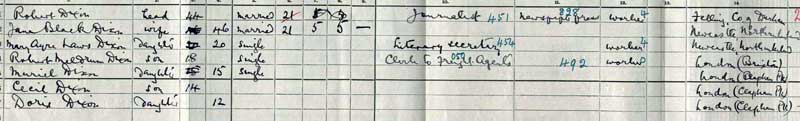 Robert Dixon Head 44 Married 21 5 5 Journalist 451 newspaper press 898 worker 4 Felling, Co of Durham
Jane Black Dixon wife 46 Married 21 5 5 — Newcastle Northumberland
Mary Ayre Laws Dixon Daughter 20 Single Literary secretary 454 worker 4 Newcastle Northumberland
Robert Meldrum Dixon son 18 Single Clerk to Freight Agents 492 worker London (Brixton)
Muriel Dixon Daughter 15 Single London (Clapham Pk)
Cecil Dixon son 14 London (Clapham Pk)
Doris Dixon Daughter 12 London (Clapham Pk)